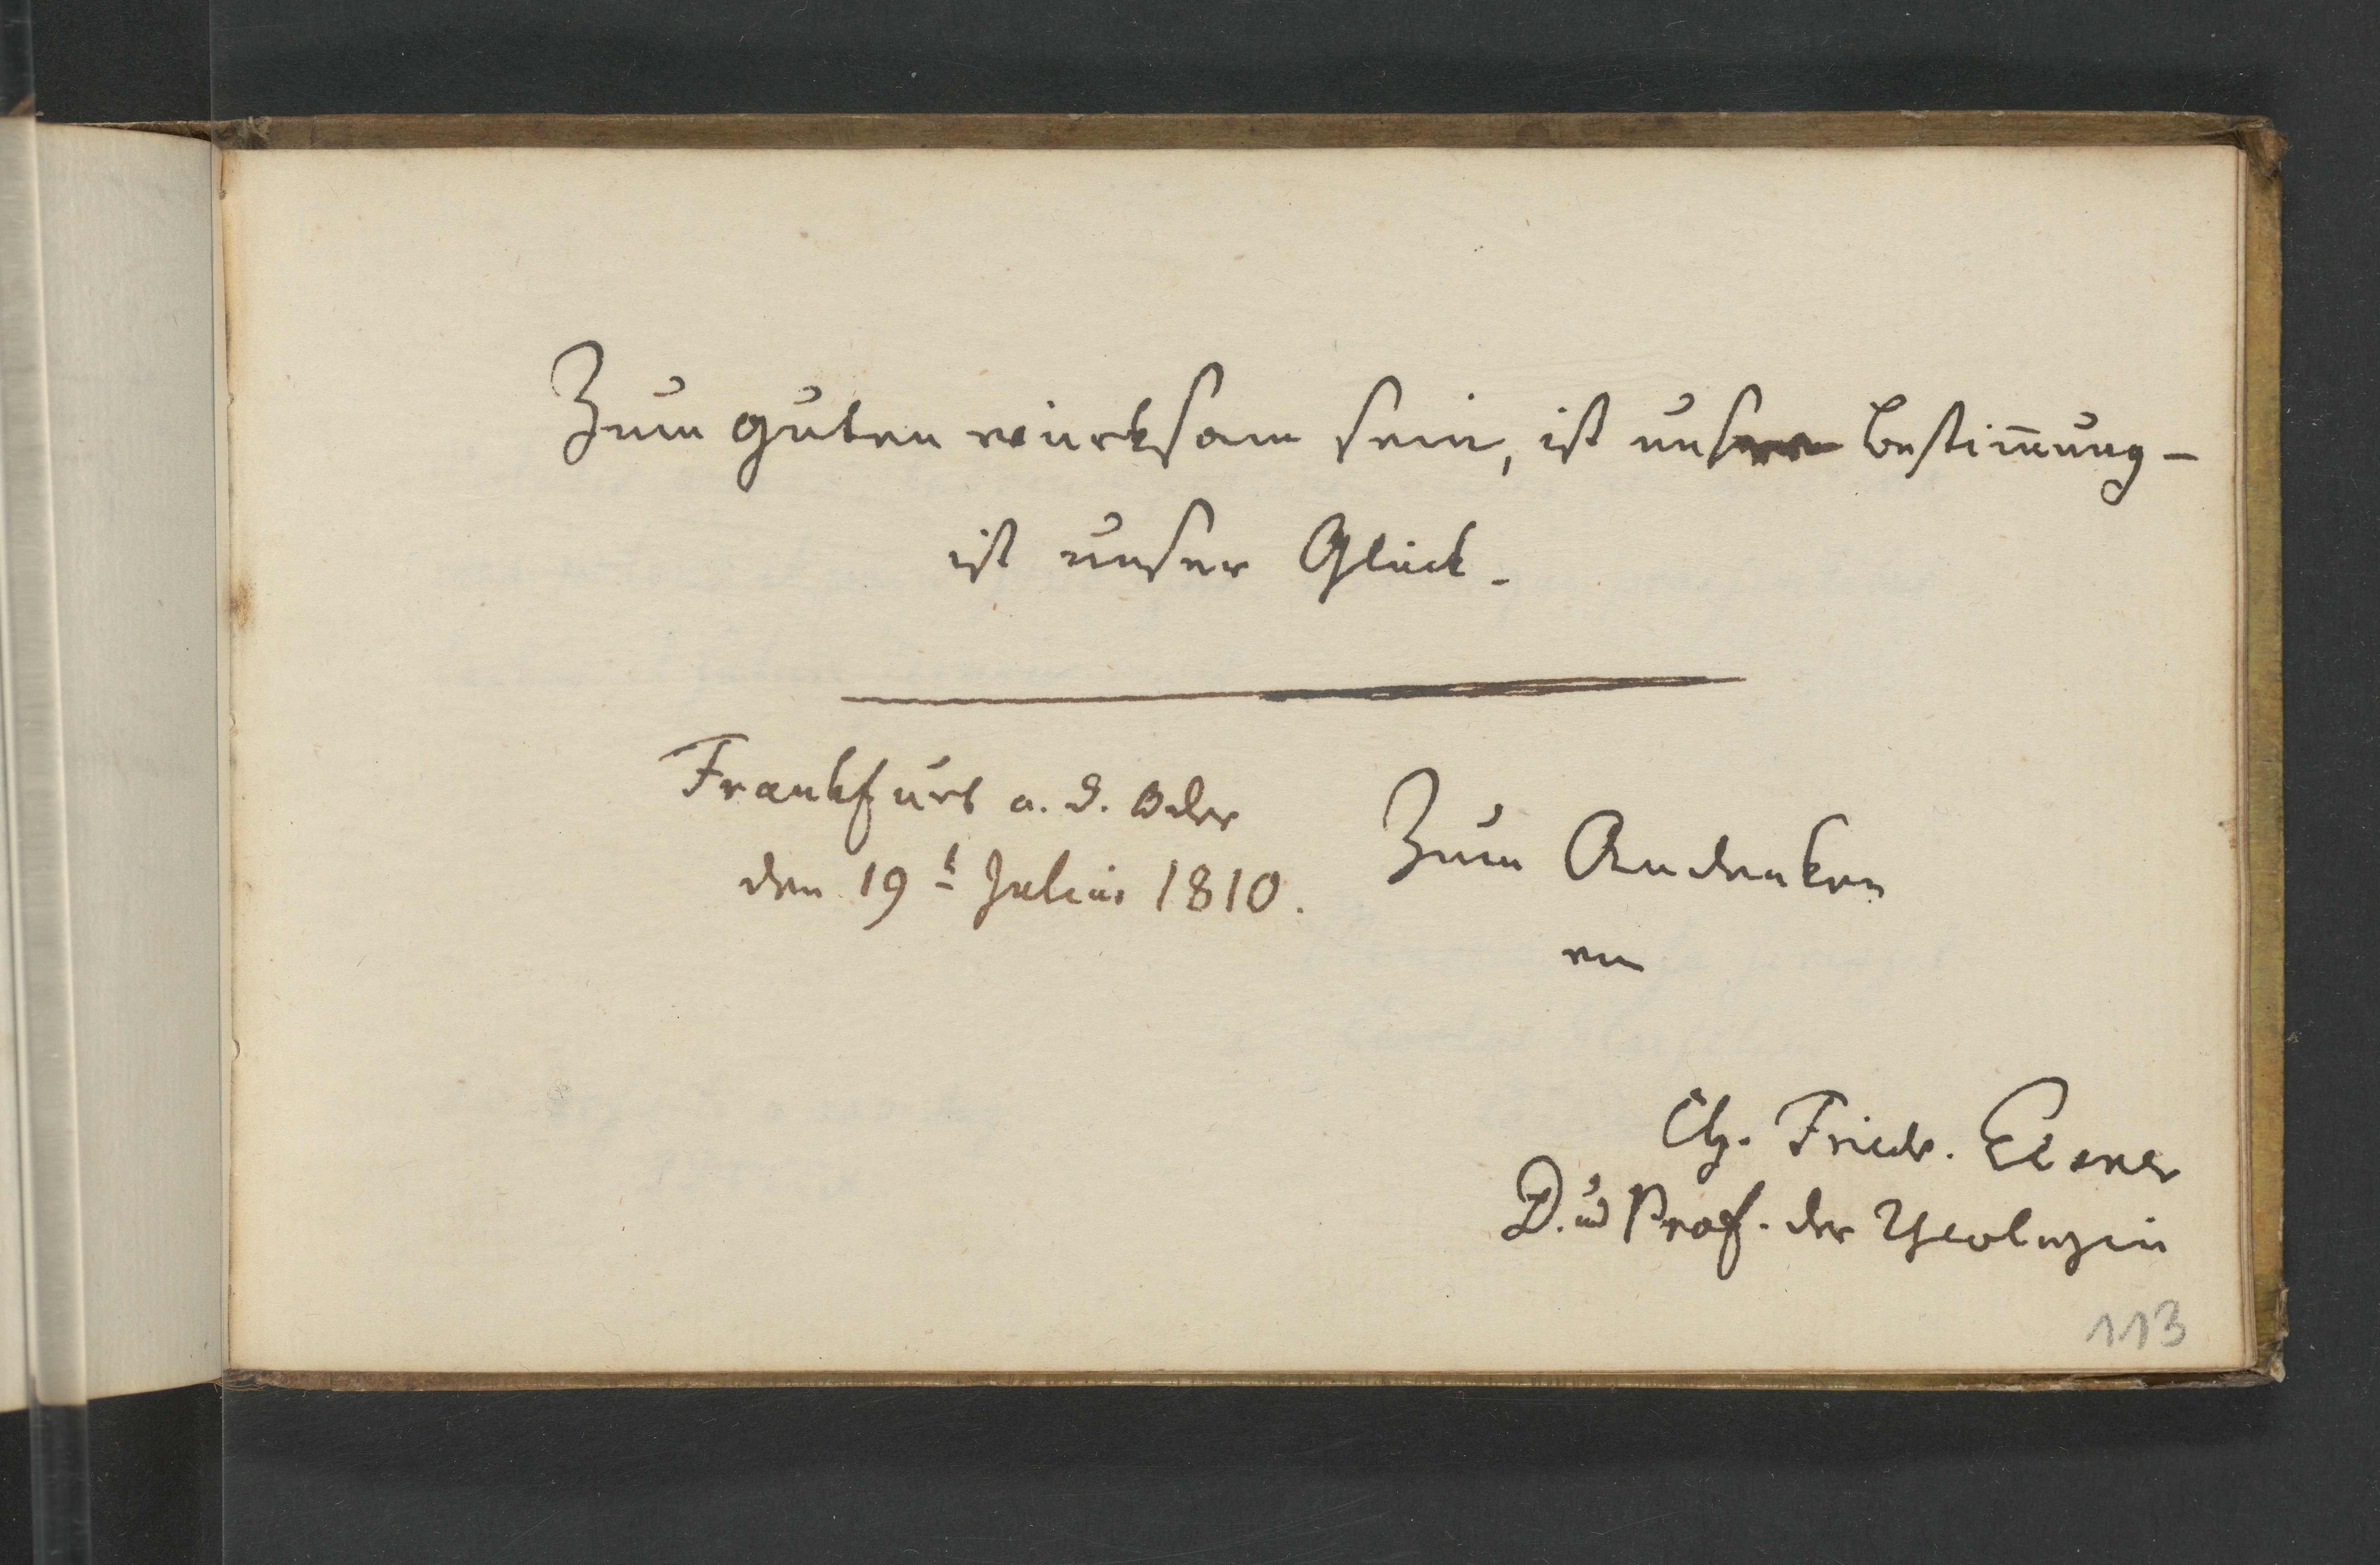 Zum guten würksam sein, ist unsere Bestim̄ung -
ist unser Glück.
Frankfurt a. d. Oder
den 19t Julius 1810.
Zum Andenken
von
Ch. Friedr. Elsner
D. und Prof. der Theologie
113